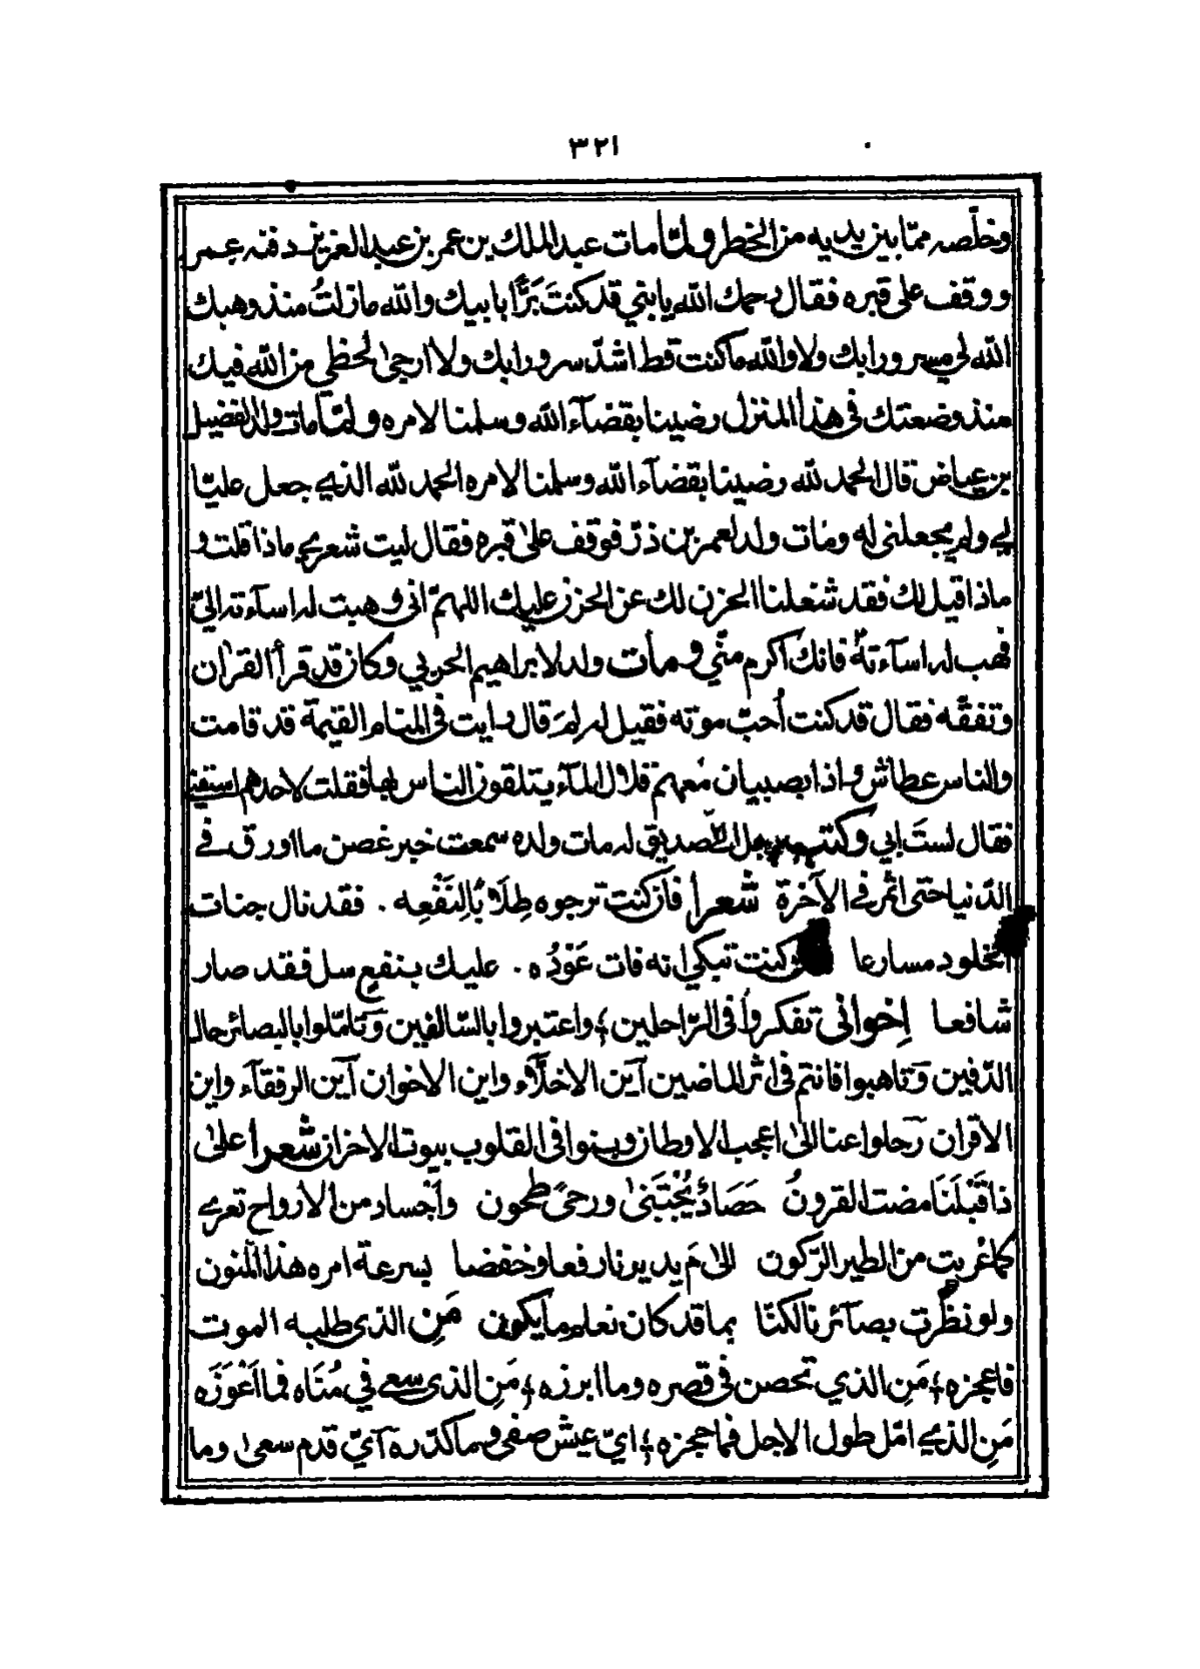 ٣٢١
وخلّصه ممّا بين يديه من الخطر ولمّا مات عبد الملك بن عمر بن عبد العزيز دفنه عمر
ووقف على قبره فقال رحمك الله يا بني قد كنتَ بَرًّا بابيك والله مازلتُ منذ وهبك
الله لي مسرورا بك ولا والله ما كنت قط اشدّ سرورا بك ولا ارجىٰ لحظي من الله فيك
منذ وضعتك في هذا المنزل رضينا بقضآء الله وسلمنا لامره ولمّا مات ولد الفضيل
بن عياض قال الحمد لله رضينا بقضآء الله وسلمنا لامره الحمد لله الذي جعل عليّا
لي ولم يجعلني له ومات ولد لعمر بن ذرّ فوقف علىٰ قبره فقال ليت شعري ماذا قلت و
ماذا قيل لك فقد شغلنا الحزن لك عن الحزن عليك اللهمّ اني وهبت له اسآءته اليّ
فهب له اسآءته فانك اكرم منّي ومات ولد لابراهيم الحربي وكان قد قرأ القرٰان
وتفقّه فقال قد كنت أحبّ موته فقيل له لِمَ قال رايت في المنام القيٰمة قد قامت
والناس عطاش واذا بصبيان معهم قلال المآء يتلقون الناس بها فقلت لاحدهم اسقني
فقال لستَ ابي وكتب رجل الىٰ صديق له مات ولده سمعت خبر غصن ما اورق في
الدّنيا حتى اثمر في الآخرة شعرا فان كنت ترجوه طِلَابًا لِنَفْعِه . فقد نال جنات
الخلود مسارعا كنت تبكي انه فات عَوْدُه . عليك بنفعٍ سل فقد صار
شافعا إخواني تفكروا في الرّاحلين؛ واعتبروا بالسّالفين وَتَامّلوا بالبصائر حال
الدّفين وَتاهبوا فانتم في اثر الماضين آين الاخلّآء واين الاخوان آين الرفقآء واين
الاقران رَحلوا عنا الىٰ اعجب الاوطان وبنوا في القلوب بيوت الاحزان شعرا علىٰ
ذا قَبْلَنَا مضت القرونُ حَصَادٌ يُجْتَنىٰ ورحىً طحون واَجْساد من الارواح تعرى
كما عُريت من الطير الرّكون الىٰ مَ يديرنا رفعا وخفضا بسرعة امره هذا المنون
ولو نظرت بصآئرنا لكنّا بما قد كان نعلم ما يكون مَنِ الذى طلبه الموت
فاعجزه؛ مَنِ الذي تحصن في قصره وما ابرزه؛ مَنِ الذى سعى في مُنَاه فما اَعْوَزَه
مَنِ الذي امّل طول الاجل فما حجزه؛ ايّ عيش صفى وما كدّره آيّ قدم سعىٰ وما